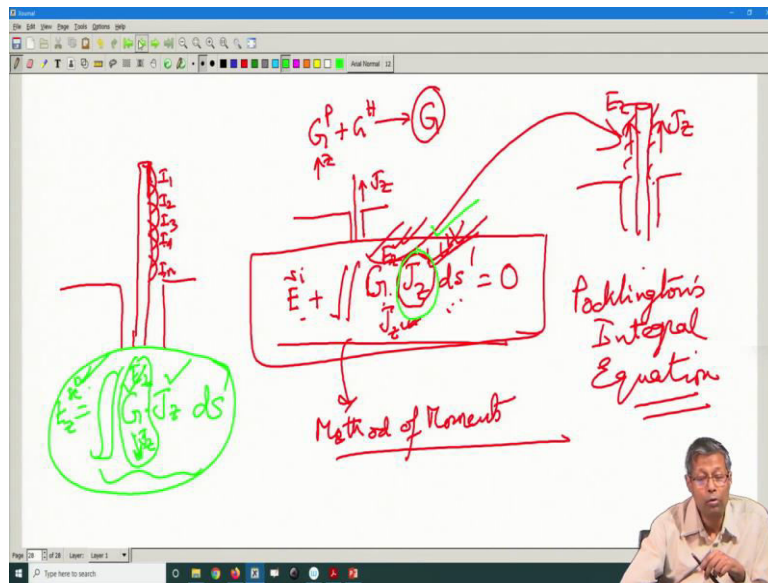 Journal
File Edit View Page Tools Options Help
Arial Normal 12
G^P + G^H → G
z
J_z
E_z J_z
I_1
I_2
I_3
I_4
I_n
E_z
E^i + ∬ G J_z ds' = 0
J_z
Pocklington's
Integral
Equation
E_z = ∬ G J_z ds'
Method of Moments
Page 28 of 28 Layer: Layer 1
Type here to search